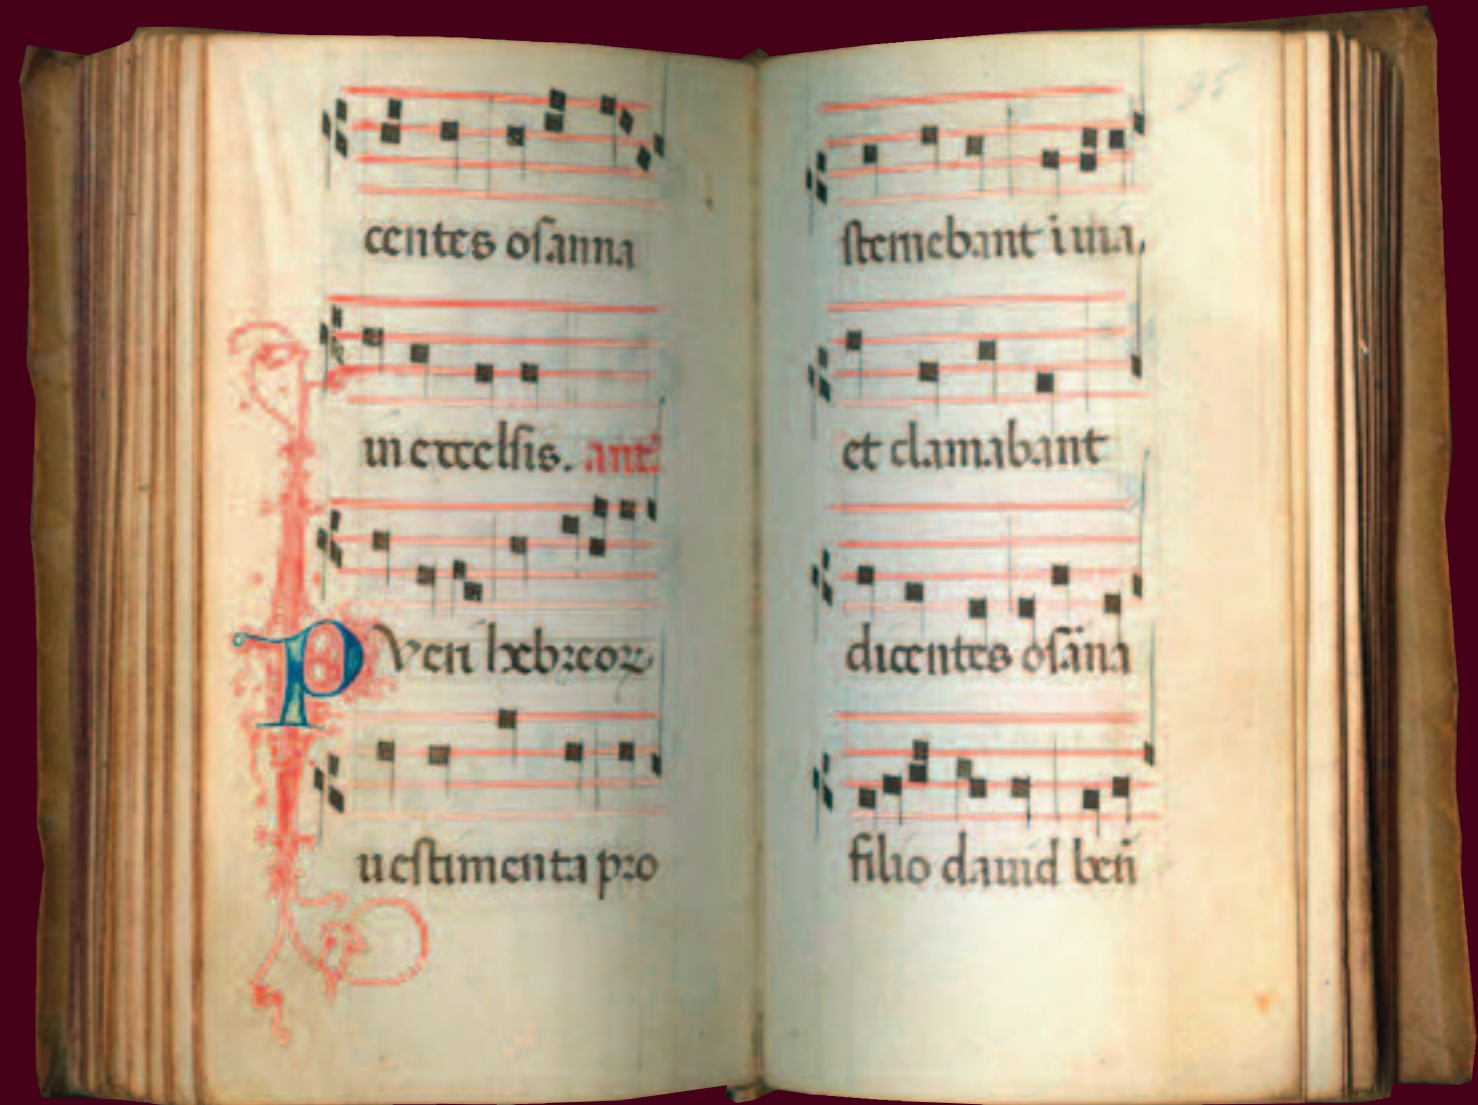 centes osanna
in excelsis. ant.
Pueri hebreoꝝ
uestimenta pro
95
sternebant in uia,
et clamabant
dicentes osāna
filio dauid ben̄